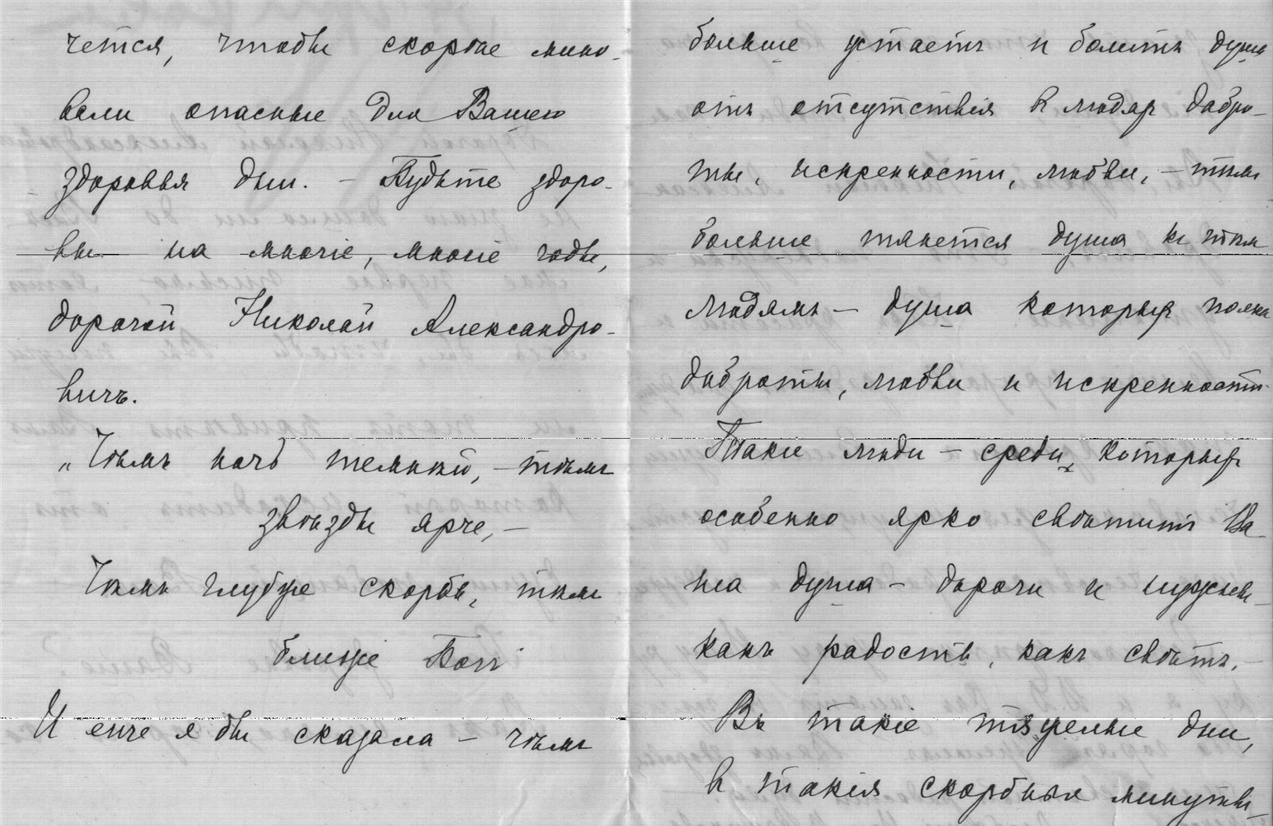 чется, чтобы скорѣе мино-
вали опасные для Вашего
здоровья дни. – Будьте здоро-
вы на многіе, многіе годы,
дорогой Николай Александро-
вичъ.
„Чѣмъ ночь темнѣй, – тѣмъ
звѣзды ярче, –
Чѣмъ глубже скорбь, тѣмъ
ближе Богъ"
И еще я бы сказала – чѣмъ
больше устаетъ и болитъ душа
отъ отсутствія в людяхъ добро-
ты, искренности, любви, – тѣмъ
больше тянется душа къ тѣмъ
людямъ – душа которыхъ полна
доброты, любви и искренности.
Такіе люди – среди которыхъ
особенно ярко свѣтитъ Ва-
ша душа – дороги и нужны
какъ радость, какъ свѣтъ. –
Въ такіе тяжелые дни,
в такія скорбныя минуты